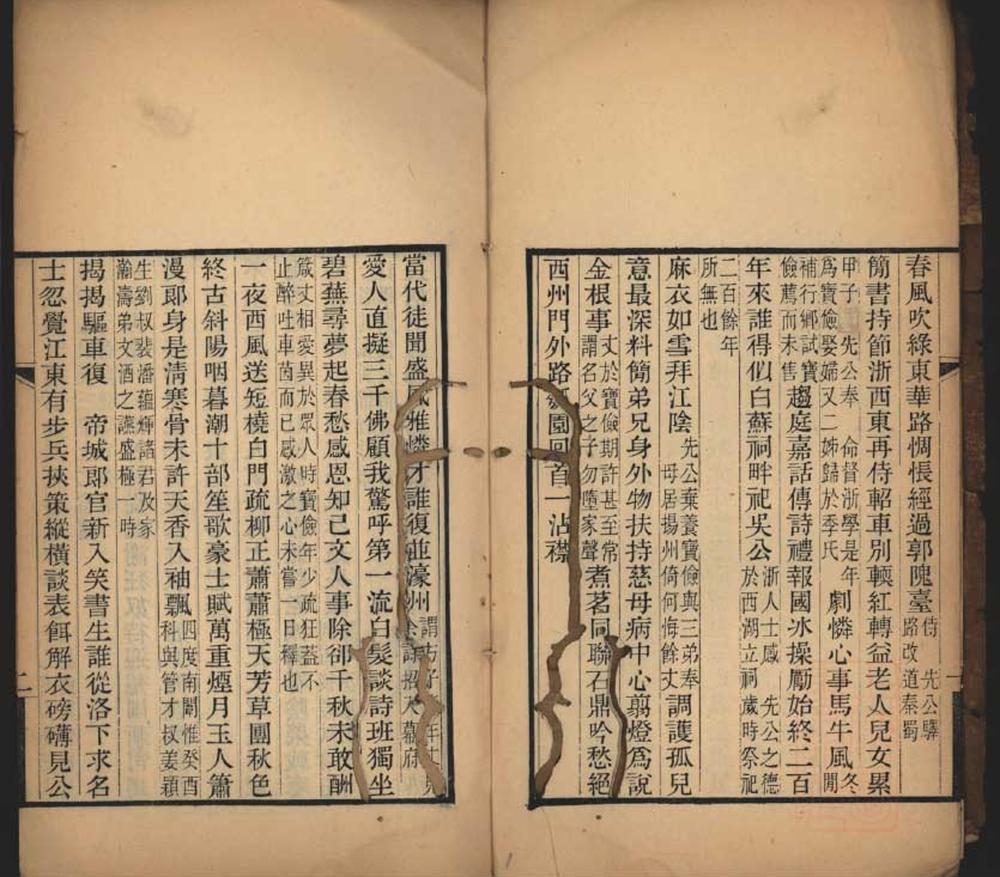 春風吹綠東華路惆悵經過郭隗臺
侍 先公驛
路改道秦蜀
簡書持節浙西東再侍軺車別轅紅轉益老人兒女累
甲子 先公奉 命督浙學是年
為寶儉娶婦又二姊歸於季氏
劇憐心事馬牛風
冬
閒
補行鄉試寶
儉薦而未售
趨庭嘉話傳詩禮報國冰操勵始終二百
年來誰得似白蘇祠畔祀吳公
浙人士感 先公之德
於西湖立祠歲時祭祀
二百餘年
所無也
麻衣如雪拜江陰
先公棄養寶儉與三弟奉
母居揚州倚何悔餘丈
調護孤兒
意最深料簡弟兄身外物扶持慈母病中心翦燈為說
金根事
丈於寶儉期許甚至常
謂名父之子勿墮家聲
煮茗同聯石鼎吟愁絕
西州門外路園回首一沾襟
當代徒聞盛雅憐才誰復並濠洲
謂方子年丈
招入幕府
愛人直擬三千佛顧我驚呼第一流白髮談詩班獨坐
碧蕪尋夢起春愁感恩知己文人事除卻千秋未敢酬
箴丈相愛異於眾人時寶儉年少疏狂蓋不
止醉吐車茵而已感激之心未嘗一日釋也
一夜西風送短橈白門疏柳正蕭蕭極天芳草團秋色
終古斜陽咽暮潮十部笙歌豪士賦萬重煙月玉人簫
漫郎身是清寒骨未許天香入袖飄
四度南闈惟癸酉
科與管才叔姜穎
生劉叔裴潘蘊輝諸君及家
瀚濤弟文酒之讌盛極一時
揭揭驅車復 帝城郎官新入笑書生誰從洛下求名
士忽覺江東有步兵挾策縱橫談表餌解衣磅礴見公
二